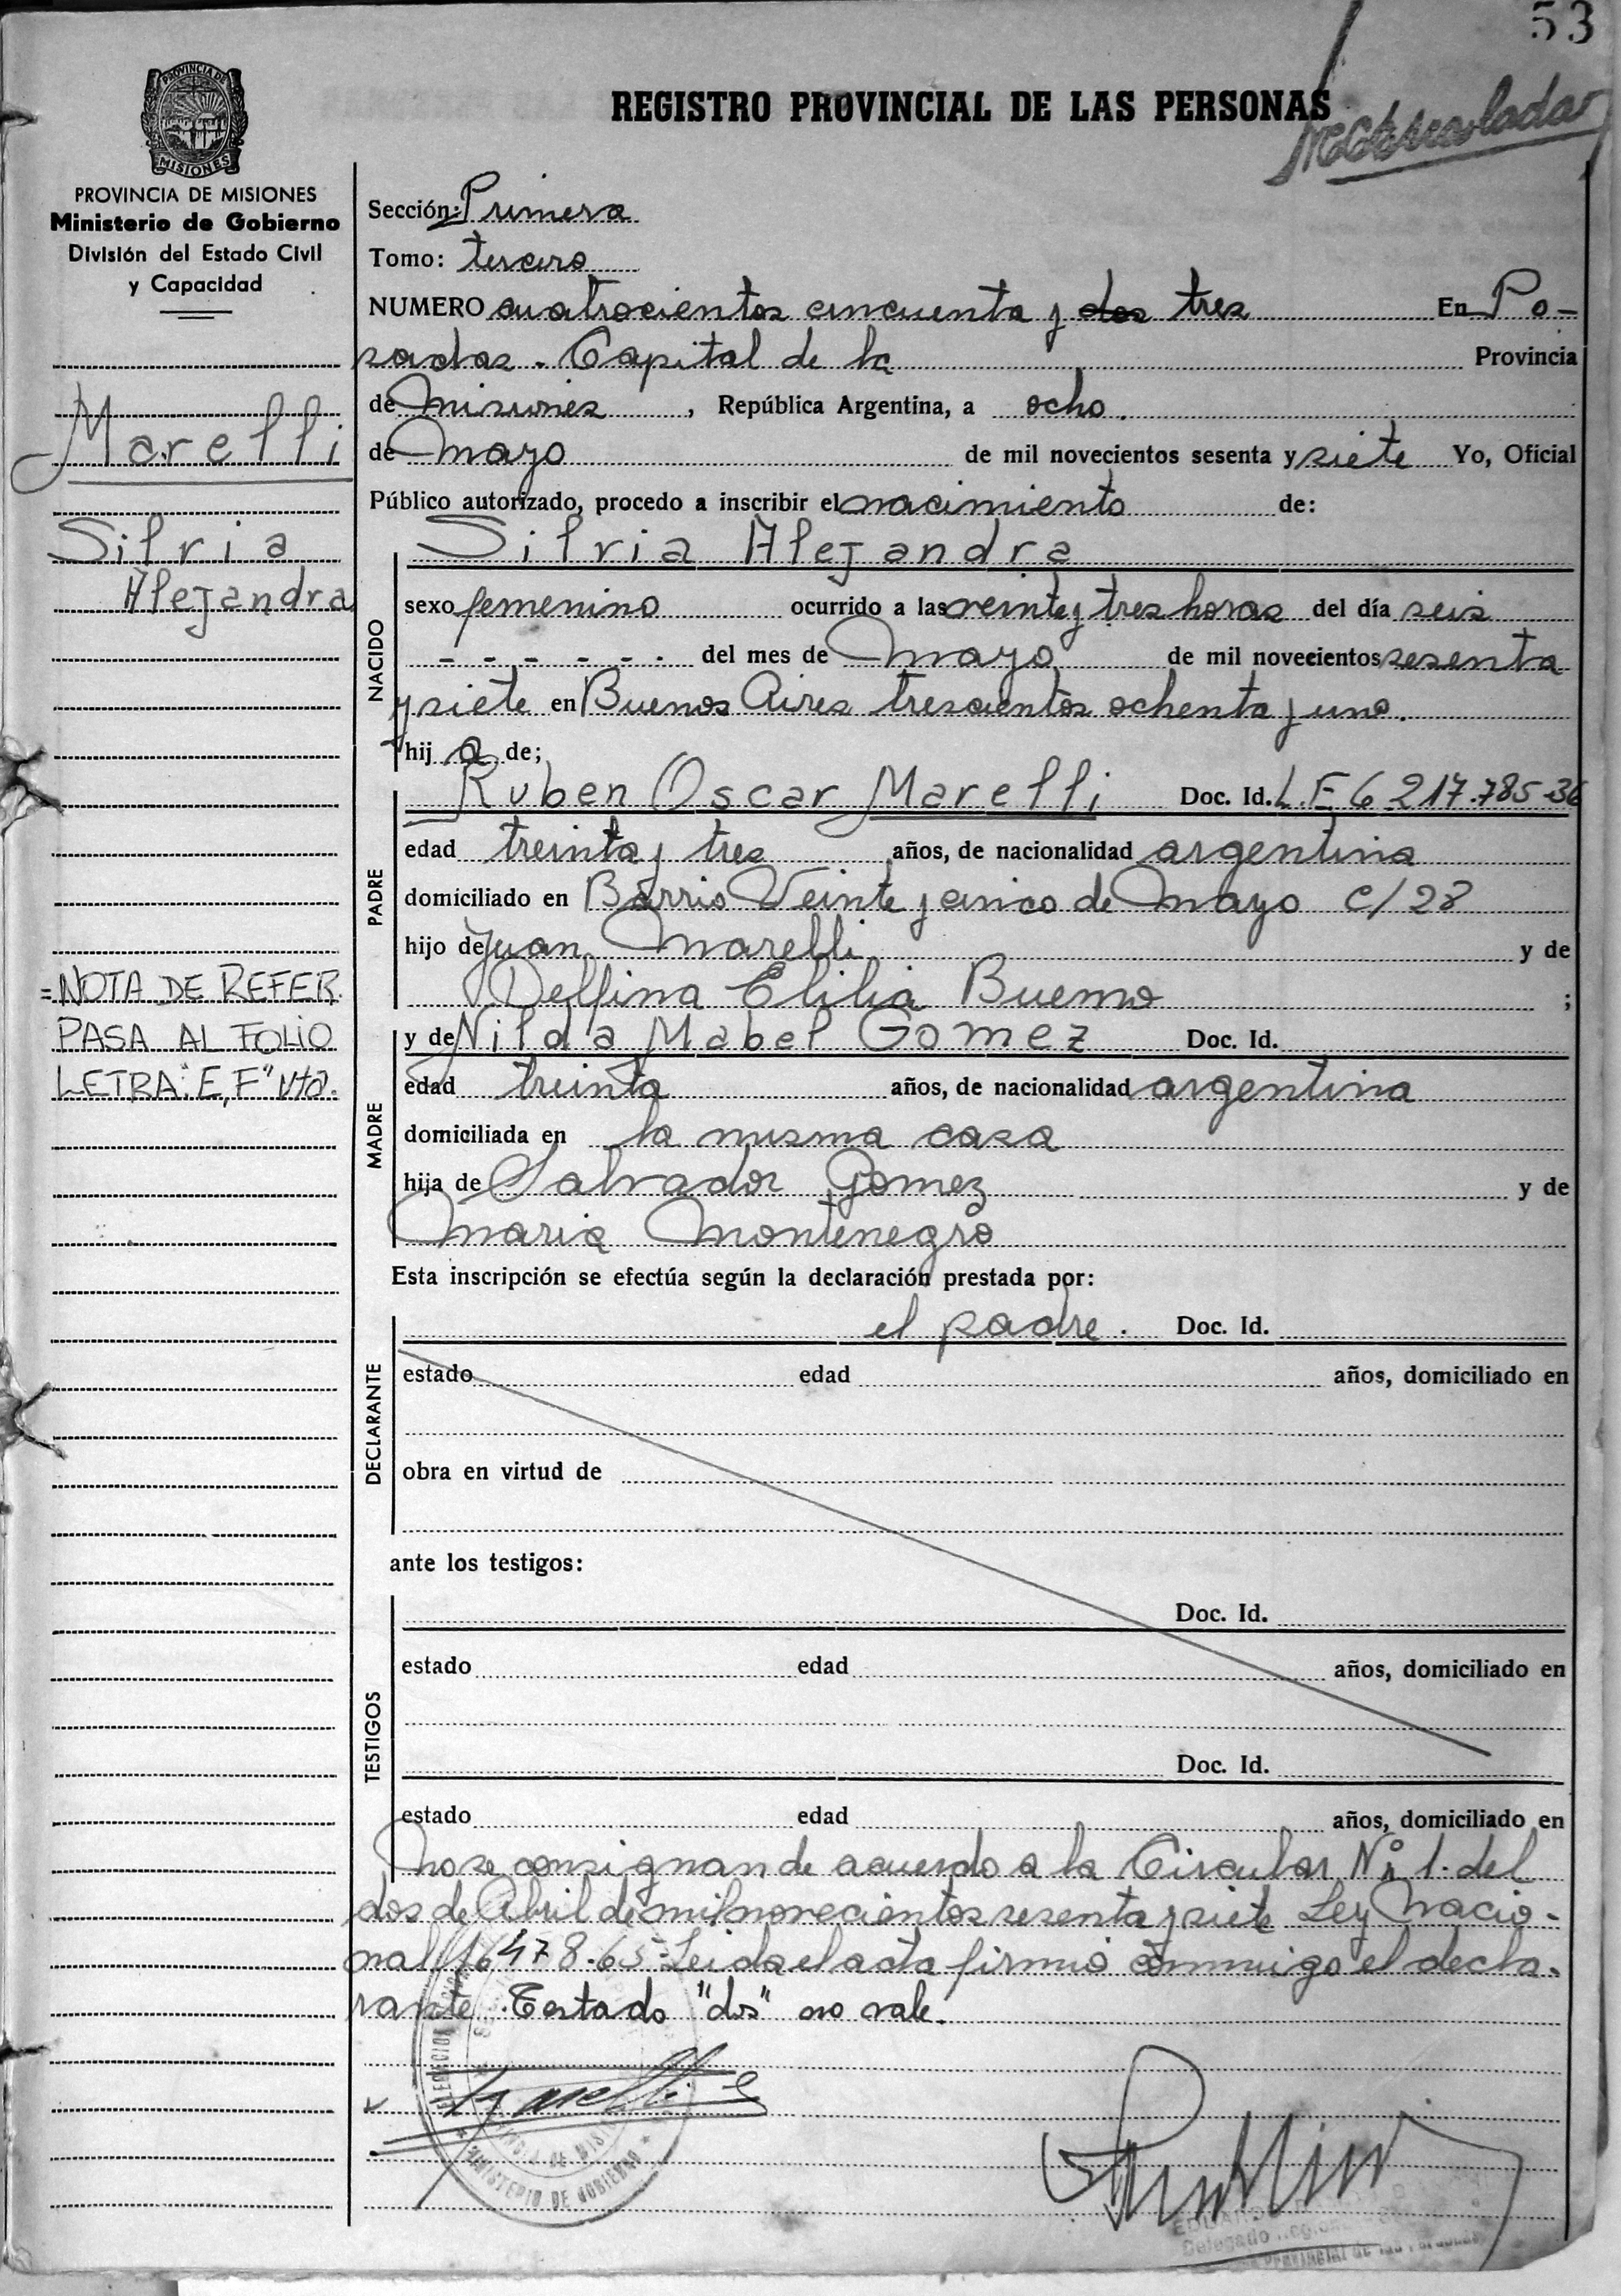 53
REGISTRO PROVINCIAL DE LAS PERSONAS
PROVINCIA DE
MISIONES
PROVINCIA DE MISIONES
Ministerio de Gobierno
División del Estado Civil
y Capacidad
Marelli
Silvia
Alejandra
= NOTA DE REFER.
PASA AL FOLIO
LETRA "E, F" Vto.
Sección: Primera
Tomo: tercero
NUMERO cuatrocientos cincuenta y dos tres En Po-
sadas. Capital de la Provincia
de Misiones, República Argentina, a ocho.
de Mayo de mil novecientos sesenta y siete Yo, Oficial
Público autorizado, procedo a inscribir el nacimiento de:
Silvia Alejandra
NACIDO
sexo femenino ocurrido a las veinte y tres horas del día seis
- - - - - - del mes de Mayo de mil novecientos sesenta
y siete en Buenos Aires trescientos ochenta y uno.
hij a de;
PADRE
Ruben Oscar Marelli Doc. Id. L.E 6 217.785-36
edad treinta y tres años, de nacionalidad argentina
domiciliado en Barrio Veinte y cinco de Mayo c/28
hijo de Juan Marelli y de
Delfina Elilia Bueno ;
MADRE
y de Nilda Mabel Gomez Doc. Id.
edad treinta años, de nacionalidad argentina
domiciliada en la misma casa
hija de Salvador Gomez y de
Maria Montenegro
Esta inscripción se efectúa según la declaración prestada por:
DECLARANTE
el padre. Doc. Id.
estado edad años, domiciliado en
obra en virtud de
ante los testigos:
TESTIGOS
Doc. Id.
estado edad años, domiciliado en
Doc. Id.
estado edad años, domiciliado en
no se consignan de acuerdo a la Circular Nº 1. del
dos de Abril de mil novecientos sesenta y siete Ley Nacio-
nal 16478.65 Leida el acta firmó conmigo el decla-
rante. Testado "dos" no vale.
Marelli
MINISTERIO DE GOBIERNO
Delegado
Provincial de las Personas